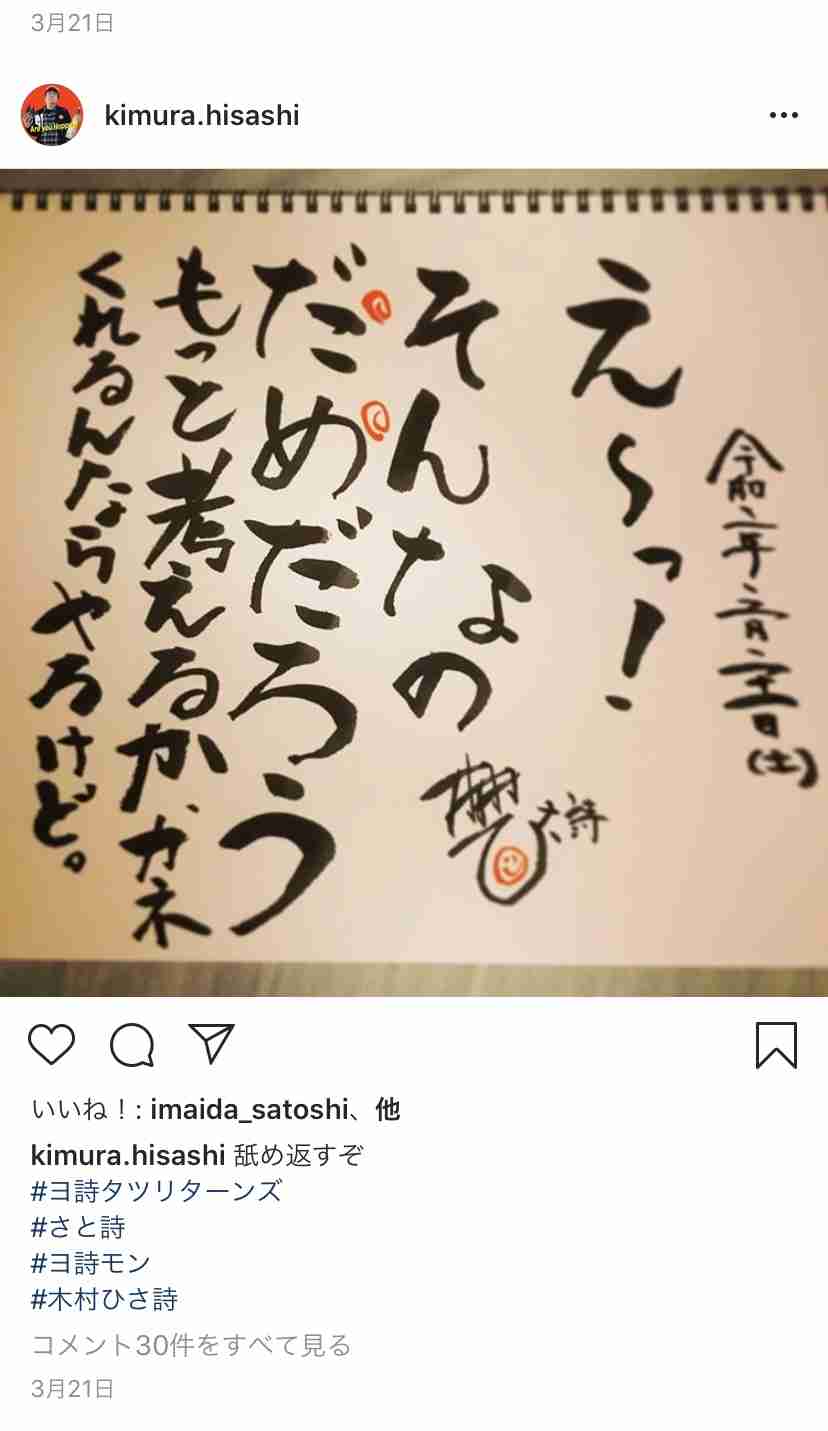 3月21日
kimura.hisashi
令和二年三月二十一日(土)
え〜っ!
そんなの
だめだろう
もっと考えるか、カネ
くれるんならやるけど。
いいね！: imaida_satoshi、他
kimura.hisashi 舐め返すぞ
#ヨ詩タツリターンズ
#さと詩
#ヨ詩モン
#木村ひさ詩
コメント30件をすべて見る
3月21日